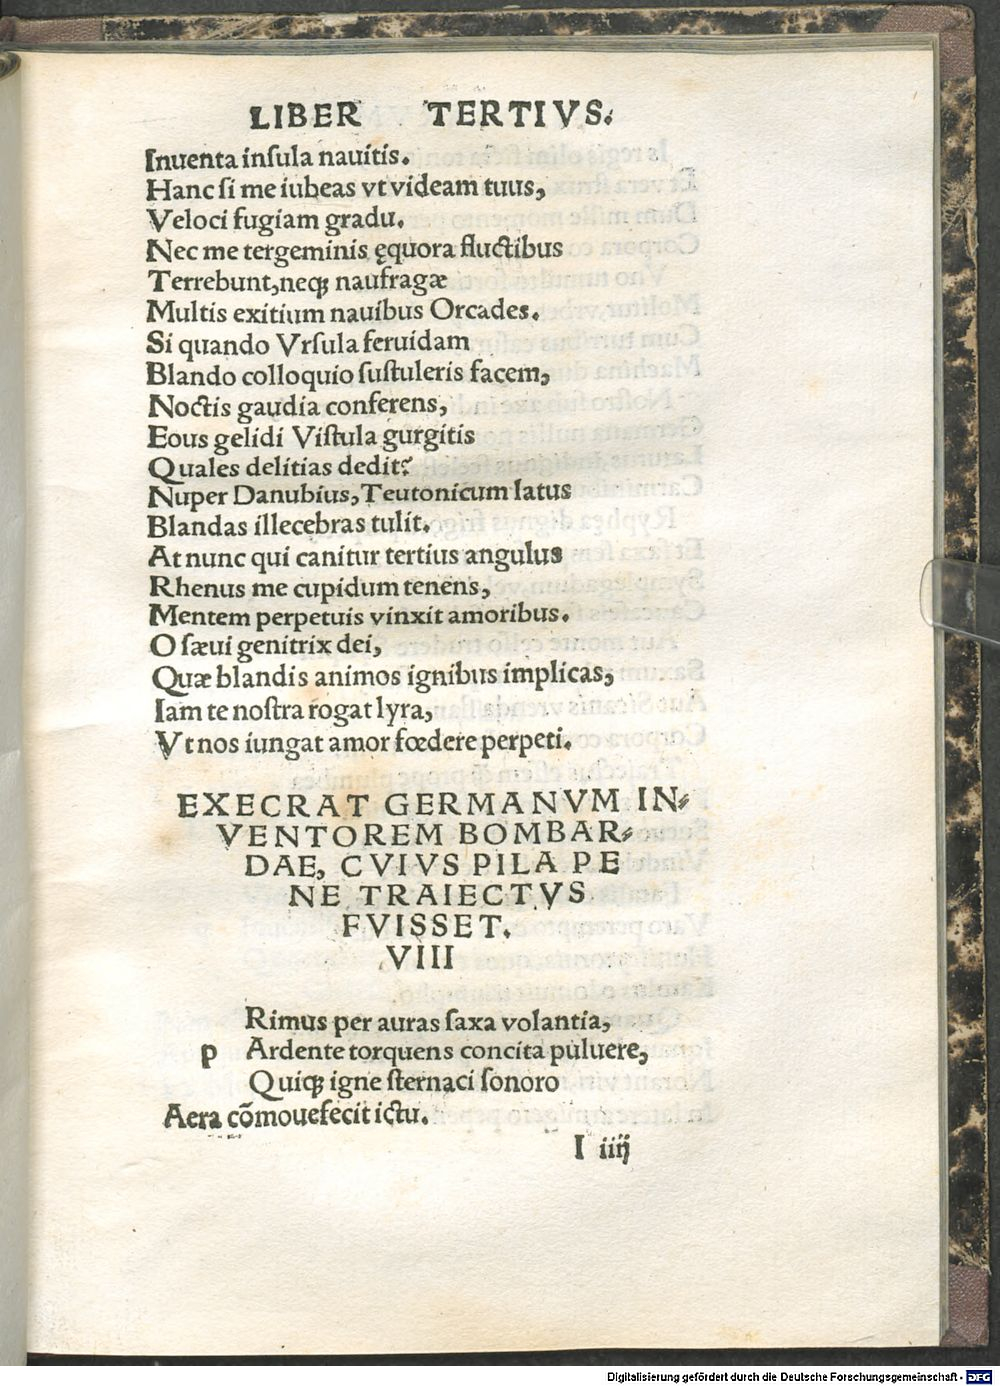 LIBER TERTIVS.
Inuenta inſula nauitis.
Hanc ſi me iubeas vt videam tuus,
Veloci fugiam gradu.
Nec me tergeminis ęquora fluctibus
Terrebunt, neqꝫ naufragæ
Multis exitium nauibus Orcades.
Si quando Vrſula feruidam
Blando colloquio ſuſtuleris facem,
Noctis gaudia conferens,
Eous gelidi Viſtula gurgitis
Quales delitias dedit?
Nuper Danubius, Teutonicum latus
Blandas illecebras tulit.
At nunc qui canitur tertius angulus
Rhenus me cupidum tenens,
Mentem perpetuis vinxit amoribus.
O ſæui genitrix dei,
Quæ blandis animos ignibus implicas,
Iam te noſtra rogat lyra,
Vt nos iungat amor fœdere perpeti.
EXECRAT GERMANVM IN⸗
VENTOREM BOMBAR⸗
DAE, CVIVS PILA PE
NE TRAIECTVS
FVISSET.
VIII
Rimus per auras ſaxa volantia,
p Ardente torquens concita puluere,
Quiqꝫ igne ſternaci ſonoro
Aera cōmouefecit ictu.
I iiij
Digitalisierung gefördert durch die Deutsche Forschungsgemeinschaft - DFG